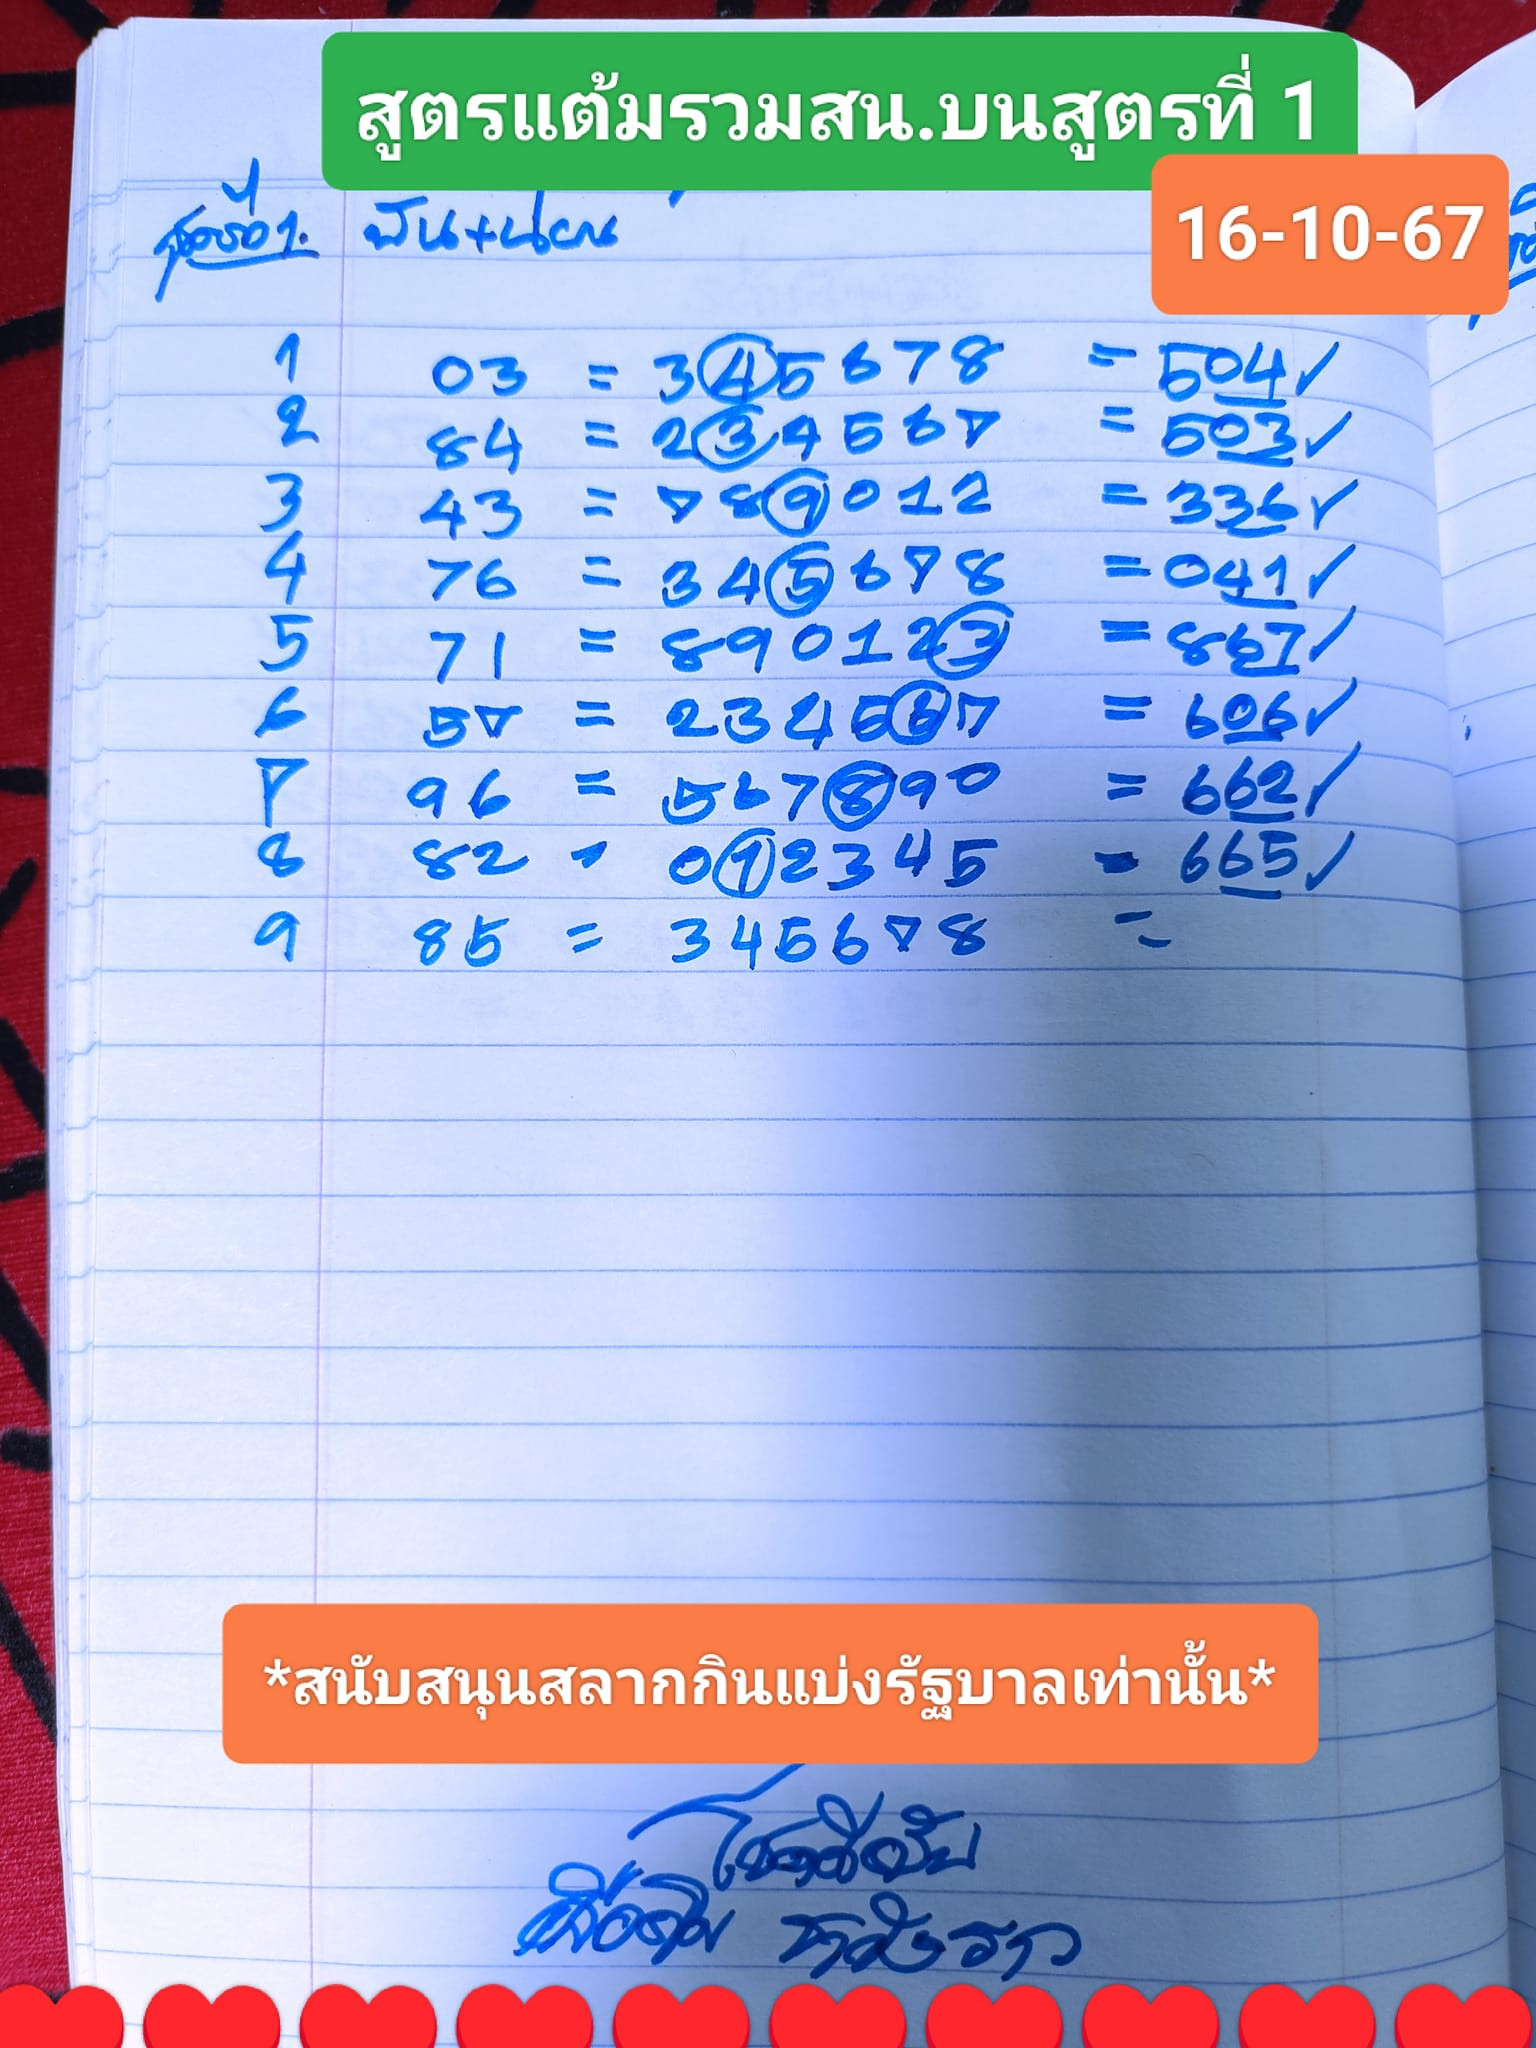 สูตรแต้มรวมสน.บนสูตรที่ 1
16-10-67
สูตรที่1. พัน+หน่วย
1 03 = 345678 = 504✓
2 84 = 234567 = 503✓
3 43 = 789012 = 336✓
4 76 = 345678 = 041✓
5 71 = 890123 = 867✓
6 57 = 234567 = 606✓
7 96 = 567890 = 662✓
8 82 = 012345 = 665✓
9 85 = 345678 =
*สนับสนุนสลากกินแบ่งรัฐบาลเท่านั้น*
โชคดีครับ